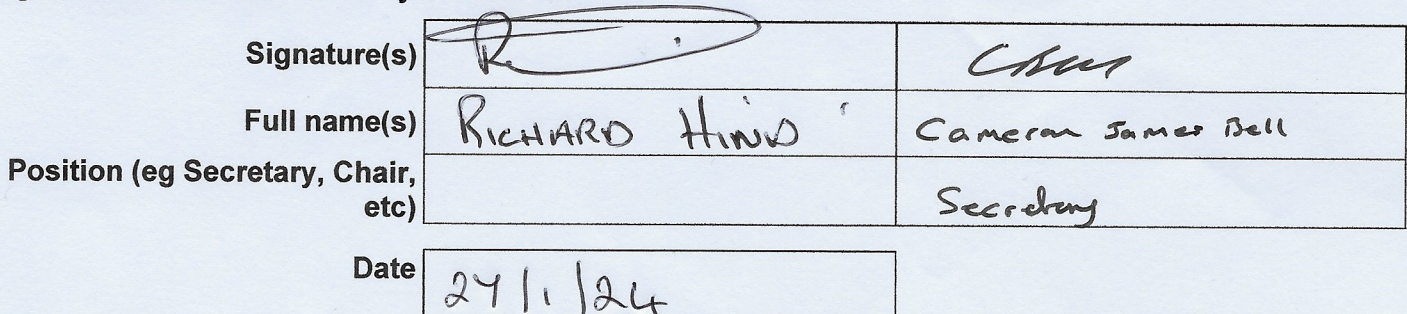 Signature(s)
Full name(s) RICHARD HIND Cameron James Bell
Position (eg Secretary, Chair,
etc) Secretary
Date /1/24